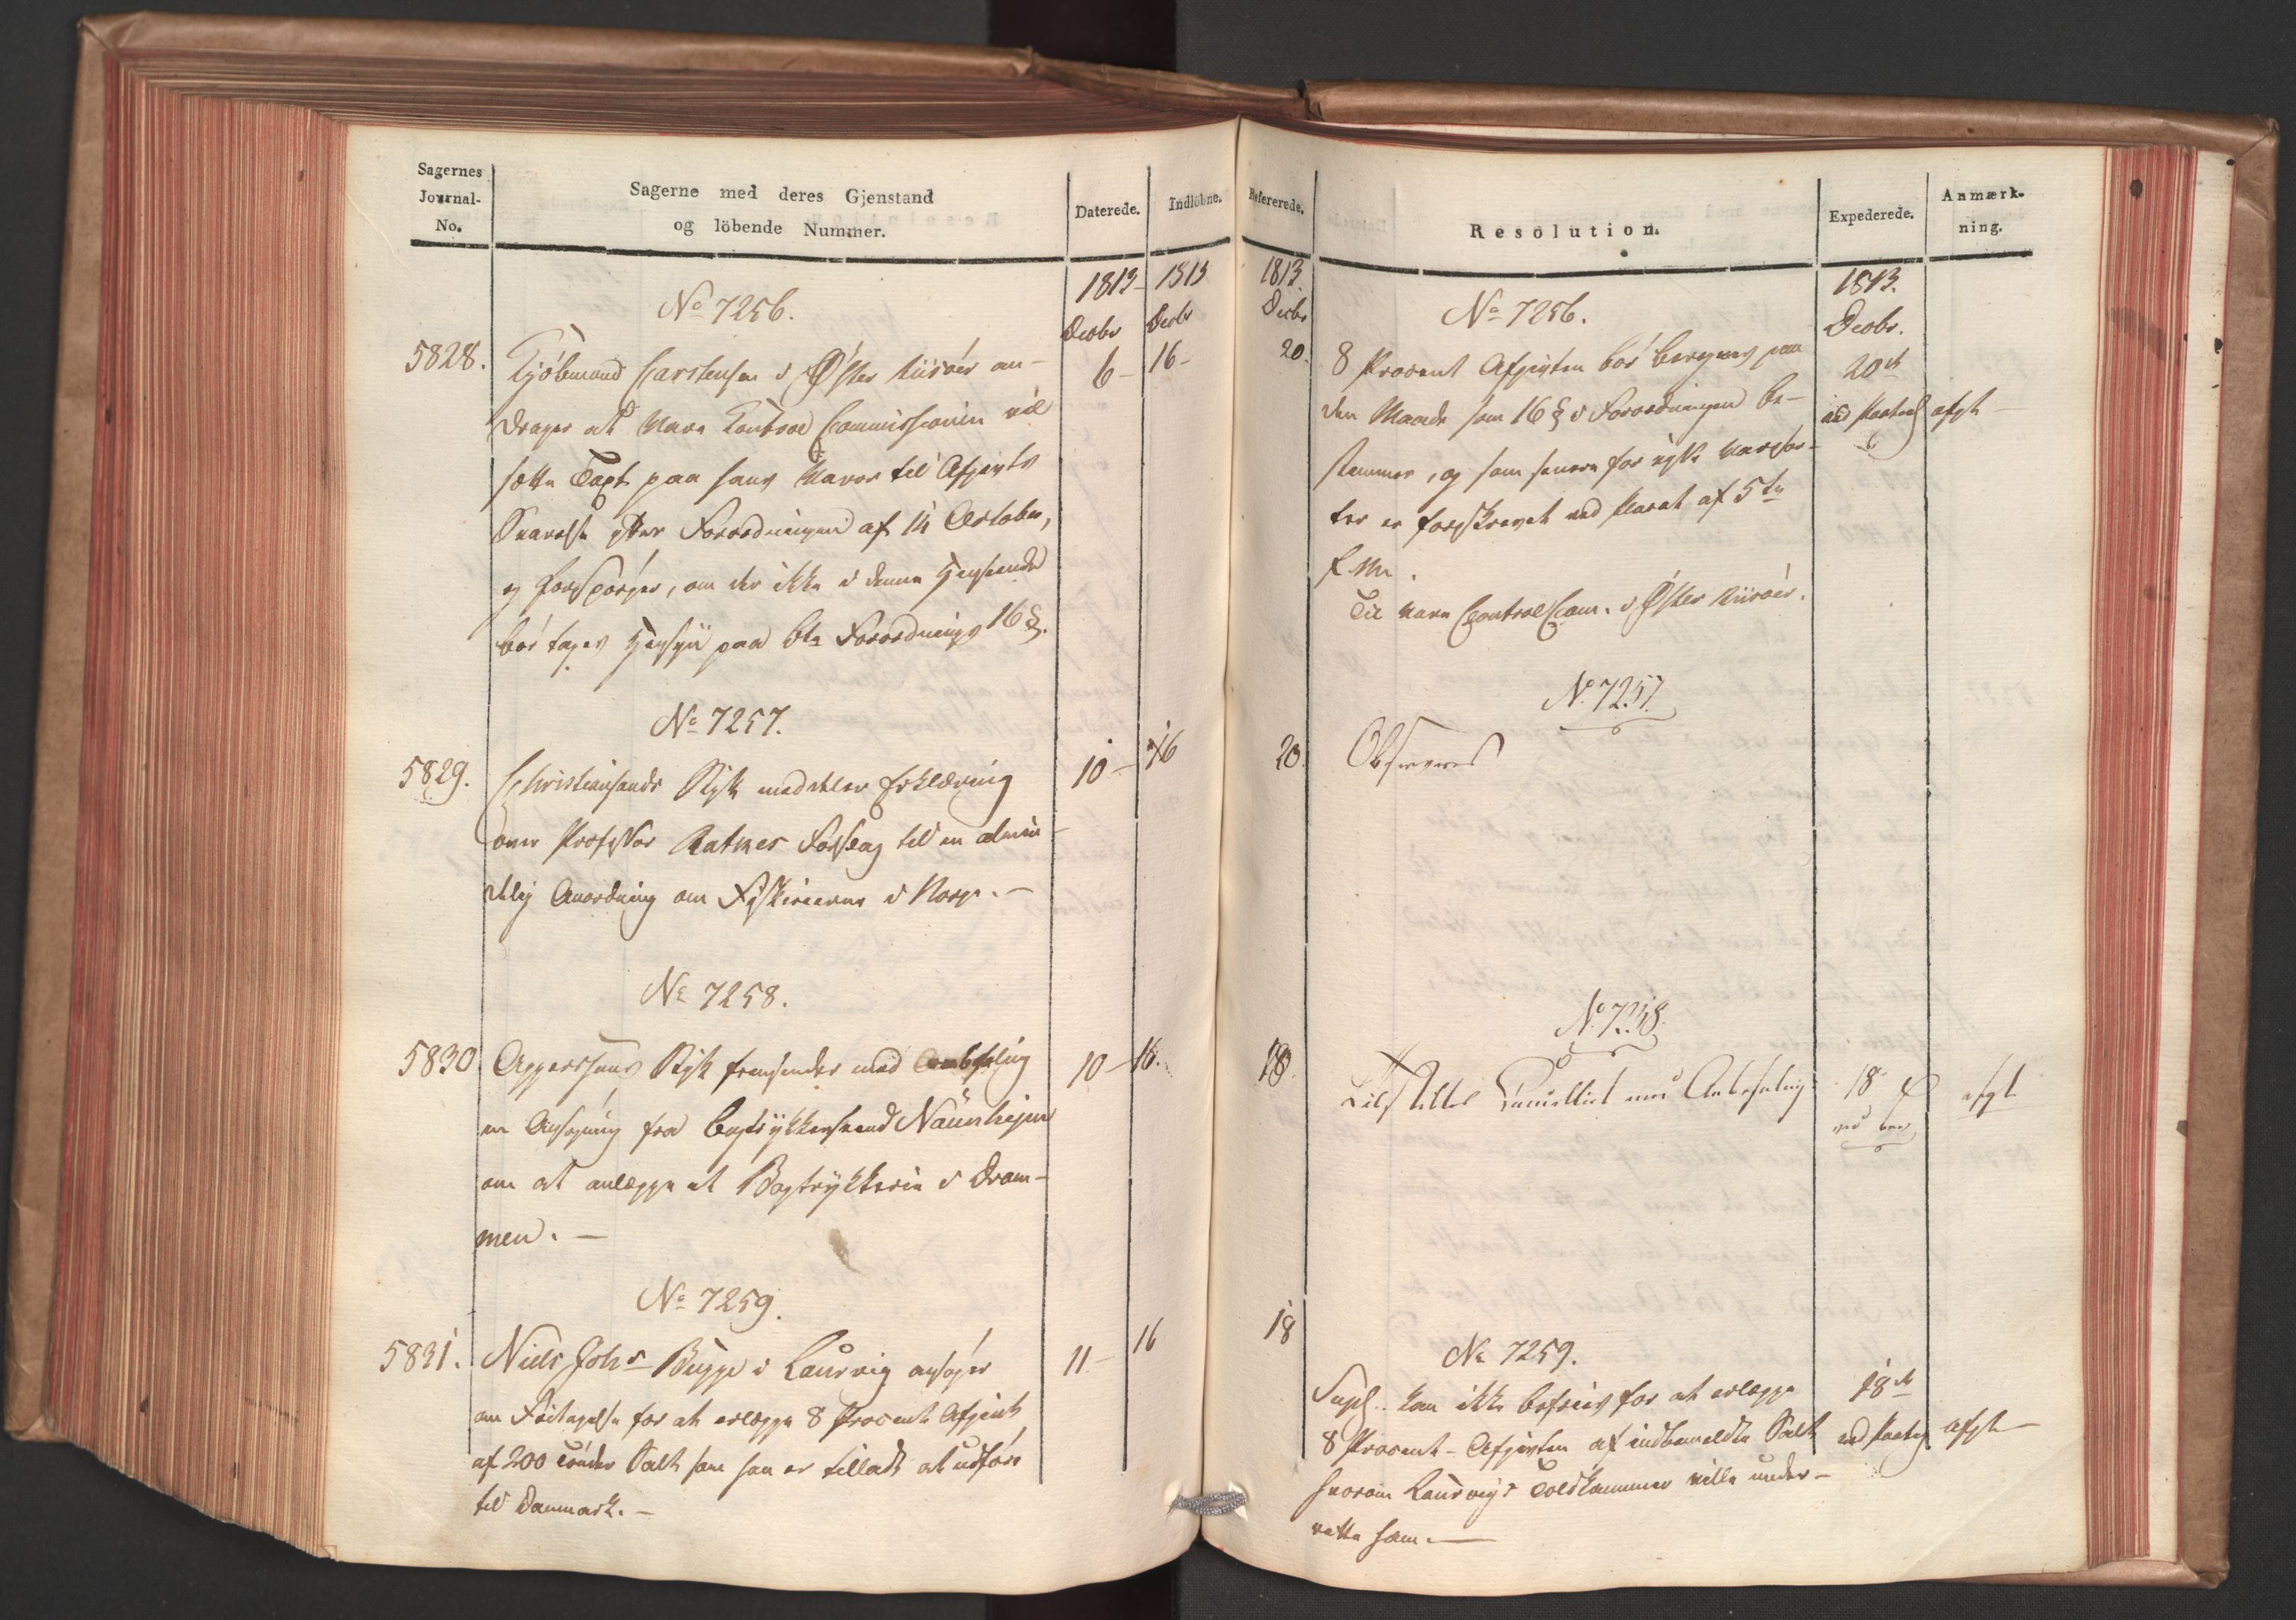 Sagernes
Journal-
No.
Sagerne med deres Gjenstand
og löbende Nummer.
Daterede.
Indlöbne.
1813
Decbr
1813
Decbr
No 7256.
5828.
Kjöbmand Carstensen i Øster Riisöer an-
6-
16-
drager at Vare Control Commissionen vil
sætte Taxt paa hans Varer til Afgivts
Svarelse efter Forordningen af 14 October,
og forespörger, om der ikke i denne Henseende
bör tages Hensyn paa bte Forordnings 16 §.
No 7257.
5829.
Christiansands Stift meddeler Erklæring
10-
16
over Professor Rathkes Forslag til en almin-
delig Anordning om Fiskerierne i Norge.-
No 7258.
5830
Aggershuus Stift fremsender med Anbefaling
10-
16.
en Ansøgning fra Bogtrykkersvend
om at anlægge et Bogtrykkerie i Dram-
men.-
No 7259.
5831.
Niels Johs Bugge i Laurvig ansöger
11-
16
om Fritagelse for at erlægge 8 Procent Afgivt
af 200 Tönder Salt som han er tilladt at udföre
til Danmark.-
Refererede.
Resolution.
Expederede.
Anmærk-
ning.
1813
Decbr
1813.
Decbr.
No 7256.
20.
8 Procent Afgivten bör beregnes paa
20de
den Maade som 16 § i Forordningen be-
ved
afgt
stemmer, og som senere for
er foreskrevet ved Placat af 5te
f. M.
Til Vare Control Com. i Øster Riisöer.
No 7257.
20.
Observeres
No 7258.
18.
Tilstilles Cancelliet med Anbefaling
18
afgt
ved brev
18
No 7259.
Suppl. kan ikke befries for at erlægge
18de
8 Procent-Afgivten af indbemeldte Salt
ved
afgt
hvorom Laurvigs Toldkammer ville under-
rette ham.-